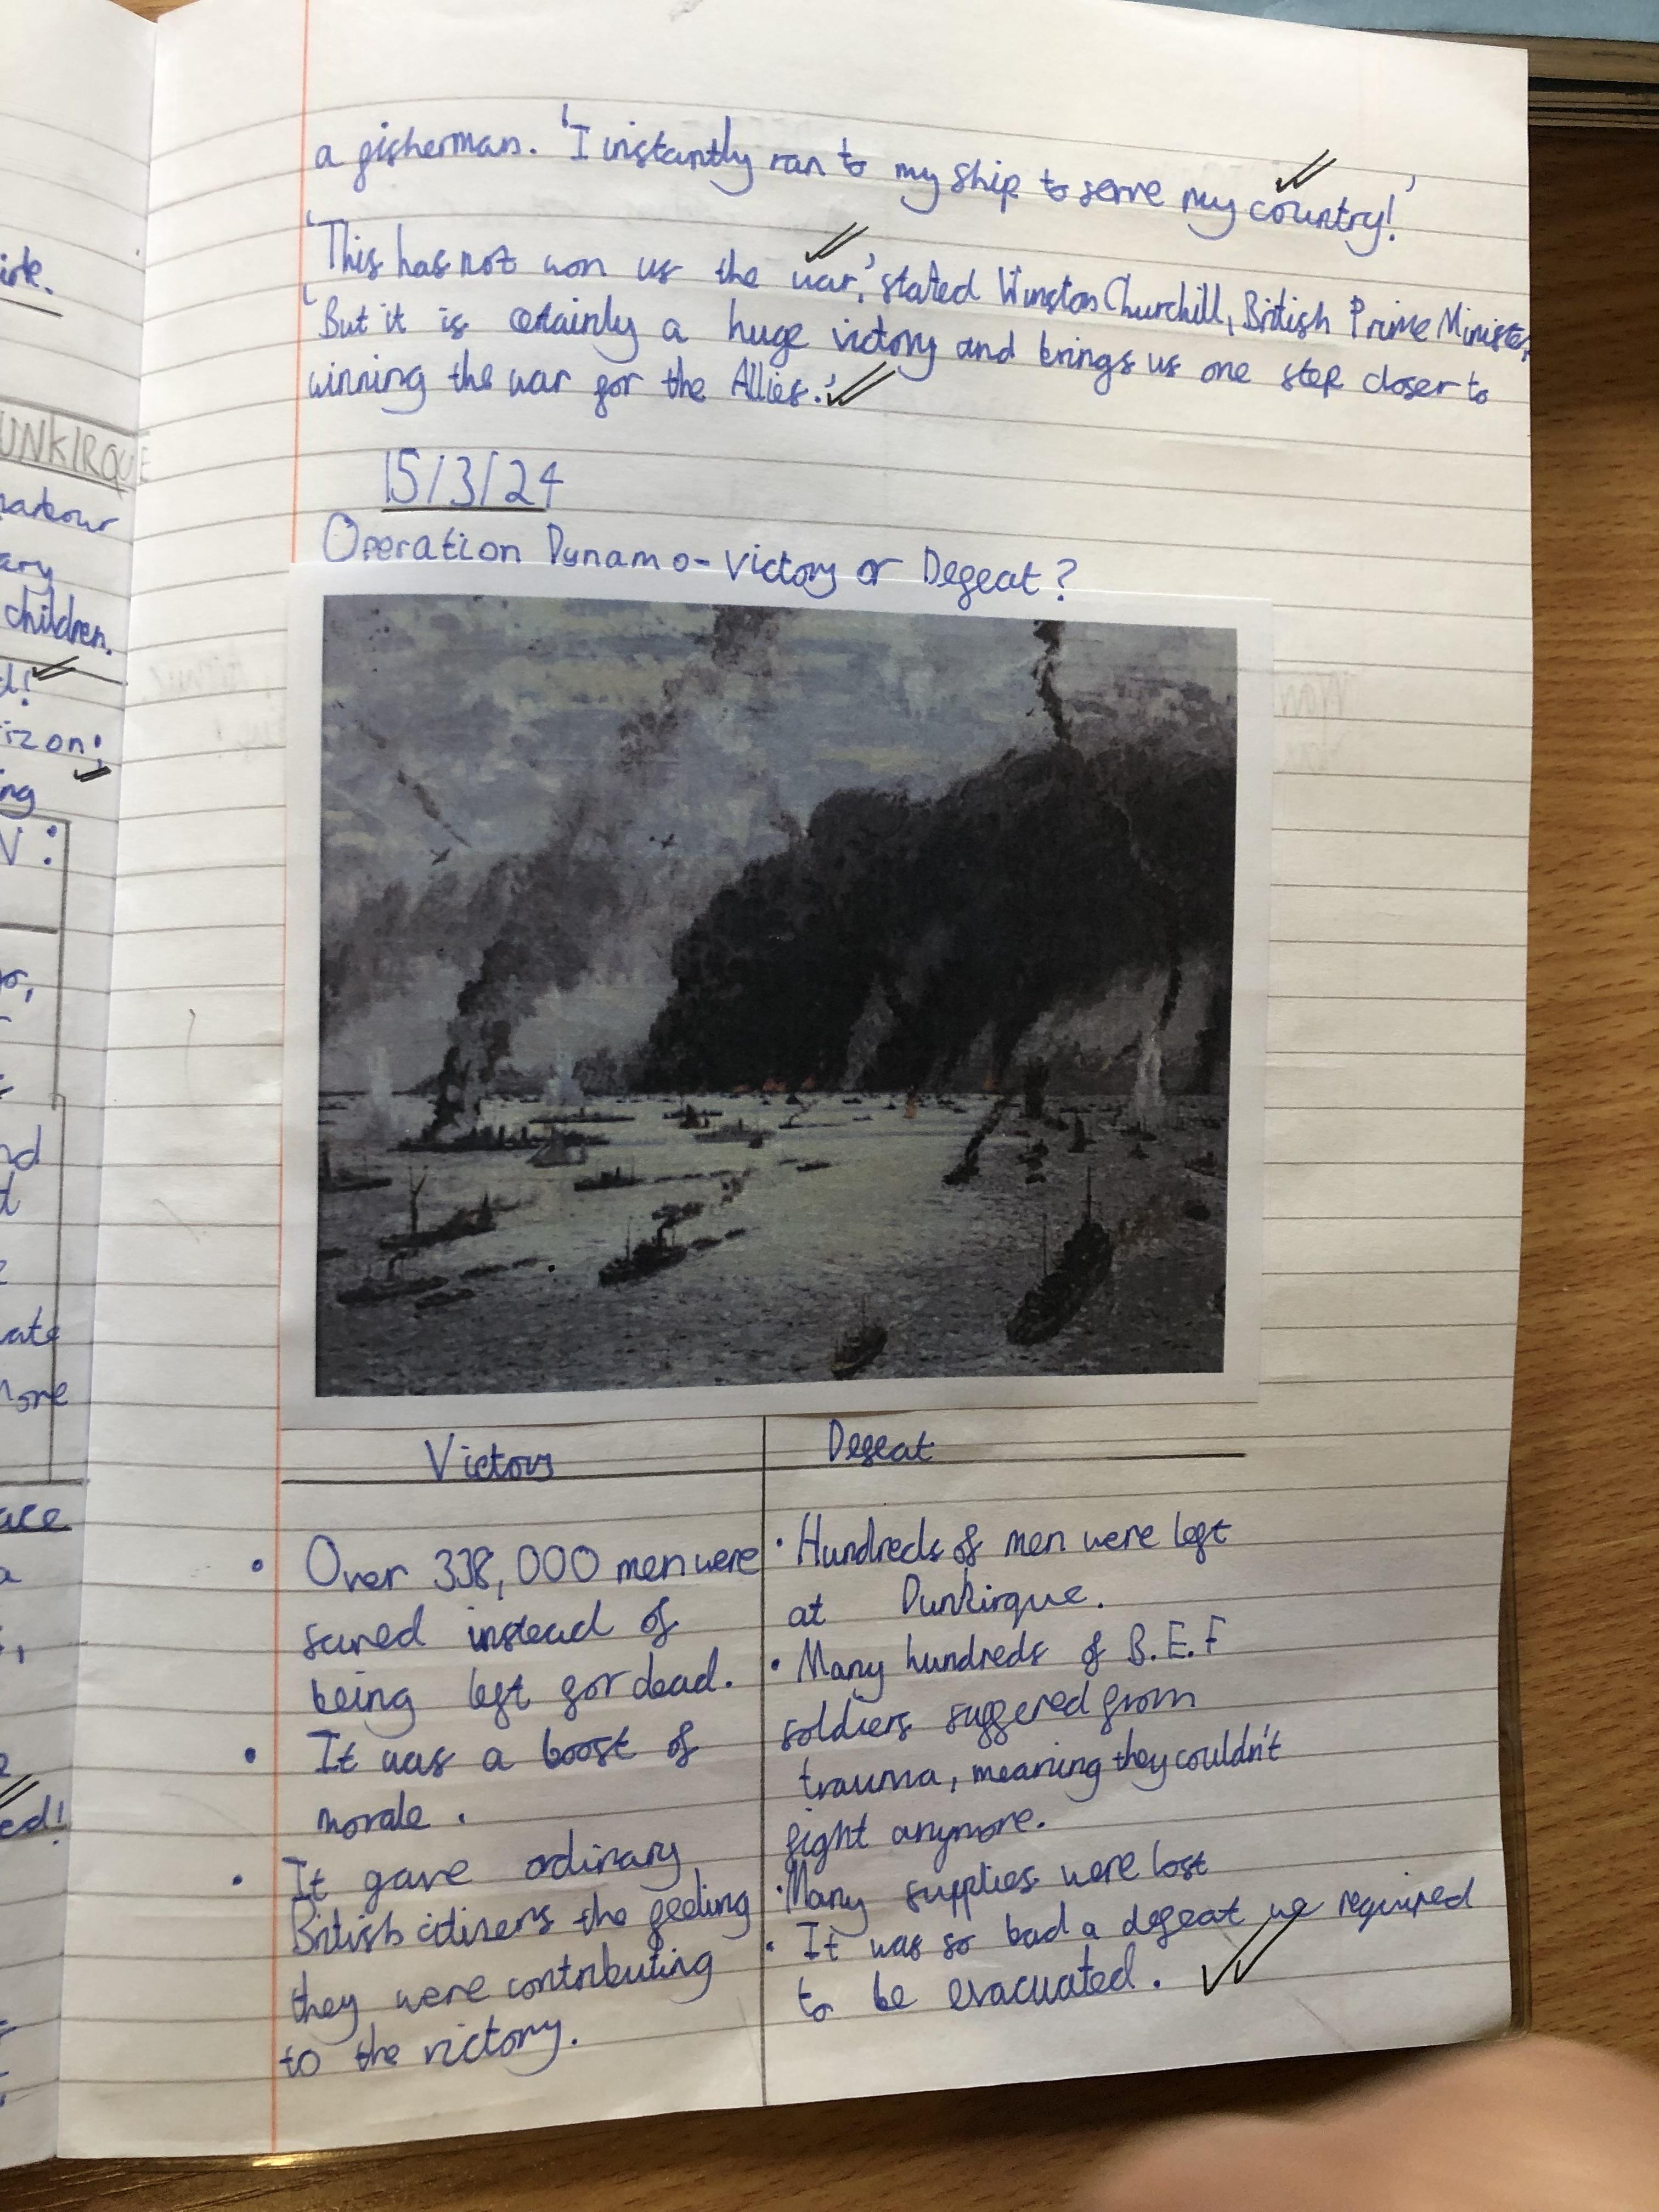 a fisherman. 'I instantly ran to my ship to serve my country!'
'This has not won us the war,' stated Winston Churchill, British Prime Minister,
'But it is certainly a huge victory and brings us one step closer to
winning the war for the Allies.'
15/3/24
Operation Dynamo - Victory or Defeat?
Victory
• Over 338,000 men were
saved instead of
being left for dead.
• It was a boost of
morale.
• It gave ordinary
British citizens the feeling
they were contributing
to the victory.
Defeat
• Hundreds of men were left
at Dunkirque.
• Many hundreds of B.E.F
soldiers suffered from
trauma, meaning they couldn't
fight anymore.
• Many supplies were lost
• It was so bad a defeat we required
to be evacuated.
UNKIRQUE
harbour
children.